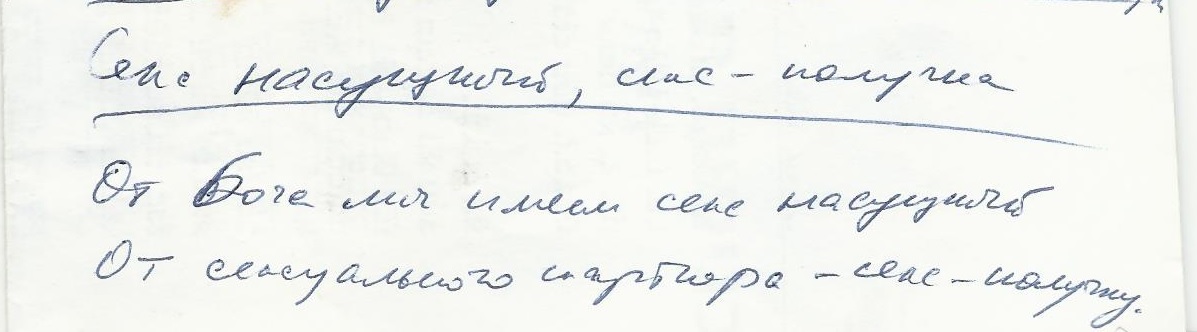 Секс насущный, секс-получка
От Бога мы имеем секс насущный
От сексуального партнёра - секс-получку.